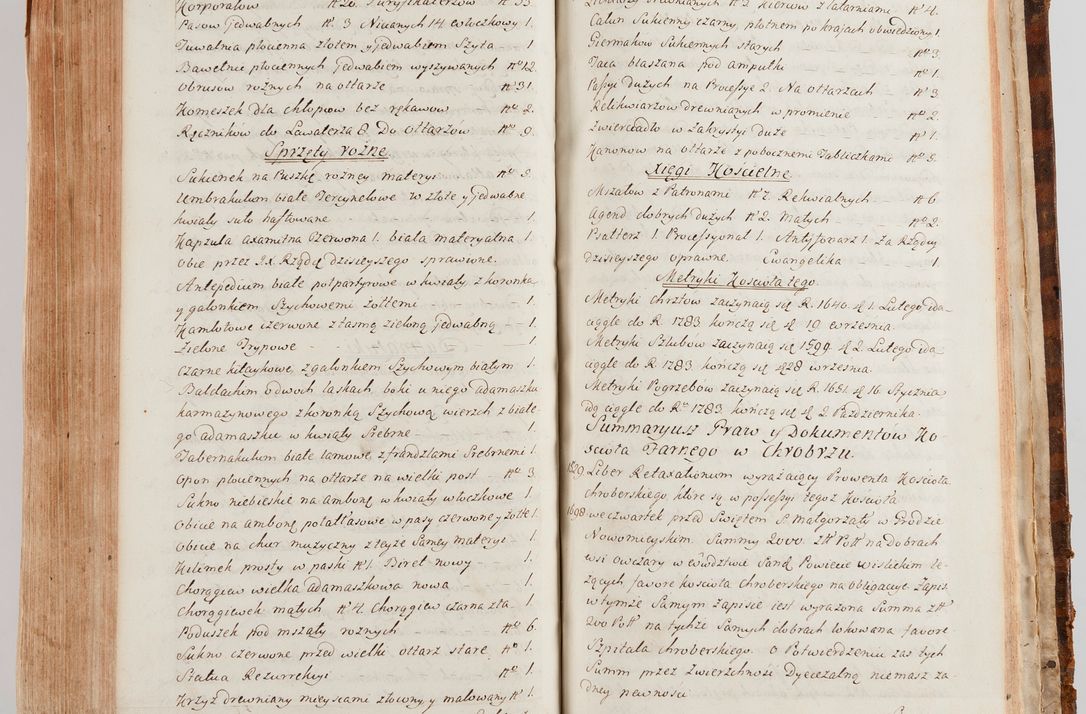 Korporałow nro 20. Puryfikaterzow nro 33.
Pasow jedwabnych nro 3. Nicianych 14 włoczkowy 1.
Tuwalnia płocienna złotem y jedwabiem szyta 1.
Bawełnic płociennych jedwabiem wyszywanych nro 12.
Obrusow rożnych na ołtarze nro 31.
Komeszek dla chłopcow bez rękawow nro 2.
Ręcznikow do Lawaterza 8. Do ołtarzow nro 9.
Sprzęty rożne
Sukienek na Puszkę rożney materyi nro 3.
Umbrakulum białe Tercynelowe w złote y jedwabne
kwiaty suto haftowane 1.
Kapzula axamitna Czerwona 1. biała materyalna 1.
Obie przez J.X. Rządcę dzisieyszego sprawione.
Antepedium białe połpartyrowe w kwiaty z koronką
y galonkiem Szychowemi żołtemi 1.
Kamlotowe czerwone z tasmą zieloną jedwabną 1.
Zielone Trypowe 1.
czarne kitaykowe z galonkiem Szychowym białym 1.
Baldachim o dwoch laskach boki u niego z adamaszku
karmazynowego z koronką Szychową, wierzch z białe-
go adamaszku w kwiaty srebrne 1.
Tabernakulum białe lamowe z frandzlami Srebrnemi 1.
Opon płociennych na ołtarze na wielki post nro 3.
Sukno niebieskie na ambonę w kwiaty włoczkowe 1.
Obicie na ambonę połatłasowe w pasy czerwone y żołte 1.
Obicie na chor muzyczny z teyże samey materyi 1.
Kilimek prosty w paski nro 1. Biret nowy 1.
Chorągiew wielka adamaszkowa nowa 1.
Chorągiewek małych nro 4. Chorągiew czarna zła 1.
Poduszek pod mszały rożnych nro 6.
Sukno czerwone przed wielki ołtarz stare nro 1.
Statua Rezurrekcyi nro 1.
Krzyż drewniany mieyscami złocony, y malowany nro 1.
nro 4.
Całun Sukienny czarny, płotnem po krajach obwiedziony 1.
Giermakow Sukiennych starych nro 3.
Taca blaszana pod ampułki nro 1.
Passyi dużych na Processye 2. Na ołtarzach nro 3.
Relikwiarzow drewnianych w promienie nro 2.
Zwierciadło w Zakrystyi duże nro 1.
Kanonow na ołtarze z pobocznemi Tabliczkami nro 3.
Xięgi Kościelne
Mszałow z Patronami nro 7. Rekwialnych nro 6.
Agend dobrych dużych nro 2. Małych nro 2.
Psałterz 1. Processyonał 1. Antyfonarz 1. za Rządcy
dzisieyszego oprawne. Ewangelika 1.
Metryki Kościoła tego
Metryki chrztow zaczynaią się R. 1640. d 1. Lutego ida
ciągle do R. 1783 kończą się d 19 września
Metryki Szlubow zaczynaią się 1599. d 2. Lutego ida
ciągle do R. 1783. kończą się d 28 września.
Metryki Pogrzebow zaczynaią się R. 1651. d 16. Stycznia
idą ciągle do Ru 1783. kończą się d 2 Października.
Summaryusz Praw y Dokumentow Ko-
ścioła Farnego w Chrobrzu.
1529 Liber Retaxationum wyrażaiący Prowenta Kościoła
chroberskiego, ktore są w possessyi tegoż Kościoła
1698 we czwartek przed Swiętem S. Małgorzaty w Grodzie
Nowomieyskim. Summy 2000. złł Poll na Dobrach
wsi Owczary w Wództwie Sand. Powiecie wiślickim le-
żących favore kościoła chroberskiego na obligacyę Zapis.
w tymże samym zapisie iest wyrażona Summa złł
200 Poll na tychże samych dobrach lokowana favore
Szpitala chroberskiego. o Potwierdzeniu zaś tych
Summ przez Zwierzchność Dyecezalną niemasz ża-
dney pewności